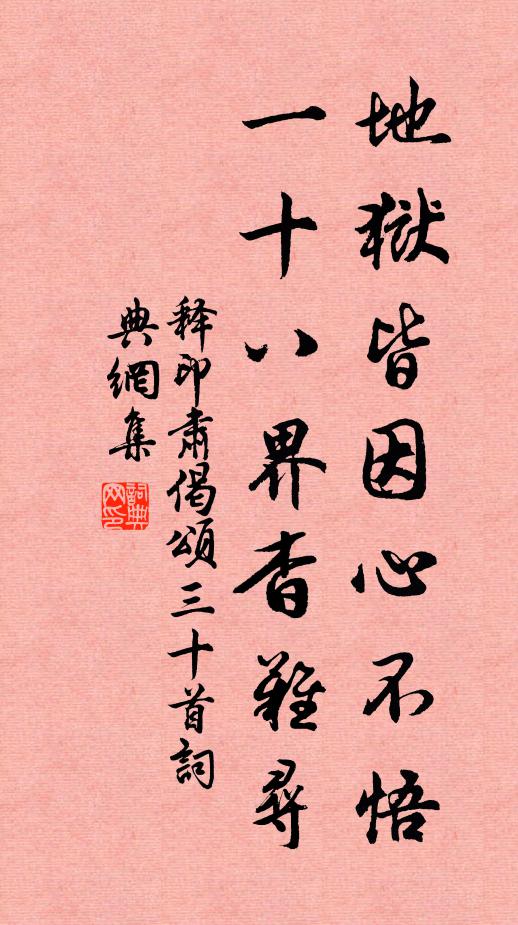 地獄皆因心不悟
一十八界杳難尋
釋印肅偈頌三十首詞
典網集
詞典
网印